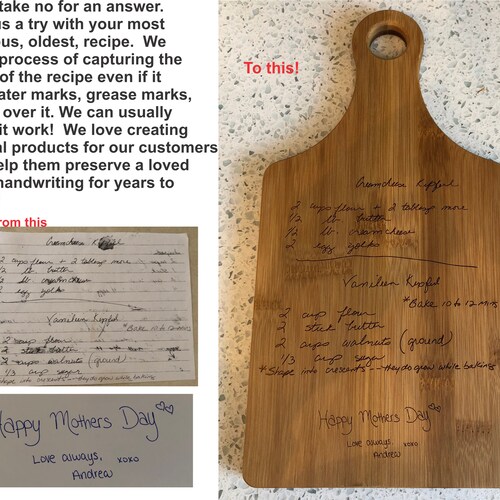 take no for an answer.
us a try with your most
ous, oldest, recipe. We
process of capturing the
of the recipe even if it
ater marks, grease marks,
over it. We can usually
it work! We love creating
al products for our customers
elp them preserve a loved
handwriting for years to
rom this
Creamcheese Kipful
2 cups flour + 2 tablesp more
1/2 lb. butter
1/2 lb. creamcheese
2 egg yolks
Vanilien Kipful
*Bake 10 to 12 mins
2 cup flour
2 stick butter
2 cups walnuts (ground)
1/3 cup sugar
Shape into crescents -- they do grow while baking
Happy Mothers Day
Love always, xoxo
Andrew
To this!
Creamcheese Kipful
2 cups flour + 2 tablesp more
1/2 lb. butter
1/2 lb. creamcheese
2 egg yolks
Vanilien Kipful
*Bake 10 to 12 mins
2 cup flour
2 stick butter
2 cups walnuts (ground)
1/3 cup sugar
*Shape into crescents -- they do grow while baking
Happy Mothers Day
Love always, xoxo
Andrew